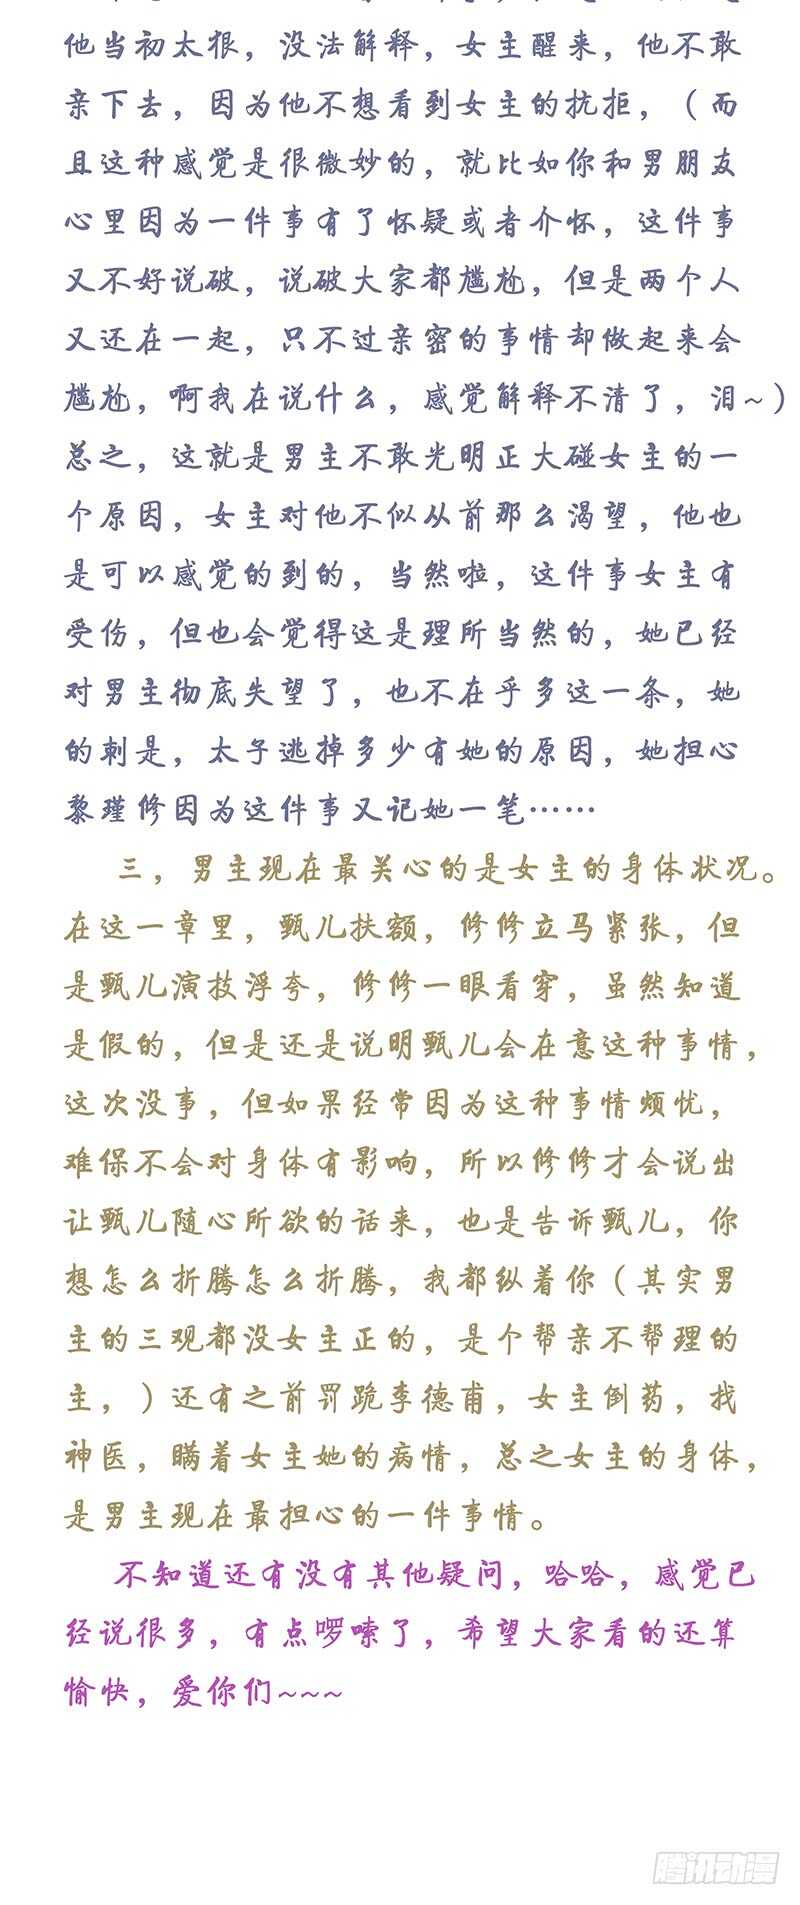 他当初太狠，没法解释，女主醒来，他不敢
亲下去，因为他不想看到女主的抗拒，（而
且这种感觉是很微妙的，就比如你和男朋友
心里因为一件事有了怀疑或者介怀，这件事
又不好说破，说破大家都尴尬，但是两个人
又还在一起，只不过亲密的事情却做起来会
尴尬，啊我在说什么，感觉解释不清了，泪~）
总之，这就是男主不敢光明正大碰女主的一
个原因，女主对他不似从前那么渴望，他也
是可以感觉的到的，当然啦，这件事女主有
受伤，但也会觉得这是理所当然的，她已经
对男主彻底失望了，也不在乎多这一条，她
的刺是，太子逃掉多少有她的原因，她担心
黎瑾修因为这件事又记她一笔……
三，男主现在最关心的是女主的身体状况。
在这一章里，甄儿扶额，修修立马紧张，但
是甄儿演技浮夸，修修一眼看穿，虽然知道
是假的，但是还是说明甄儿会在意这种事情，
这次没事，但如果经常因为这种事情烦忧，
难保不会对身体有影响，所以修修才会说出
让甄儿随心所欲的话来，也是告诉甄儿，你
想怎么折腾怎么折腾，我都纵着你（其实男
主的三观都没女主正的，是个帮亲不帮理的
主，）还有之前罚跪李德甫，女主倒药，找
神医，瞒着女主她的病情，总之女主的身体，
是男主现在最担心的一件事情。
不知道还有没有其他疑问，哈哈，感觉已
经说很多，有点啰嗦了，希望大家看的还算
愉快，爱你们~~~
腾讯动漫